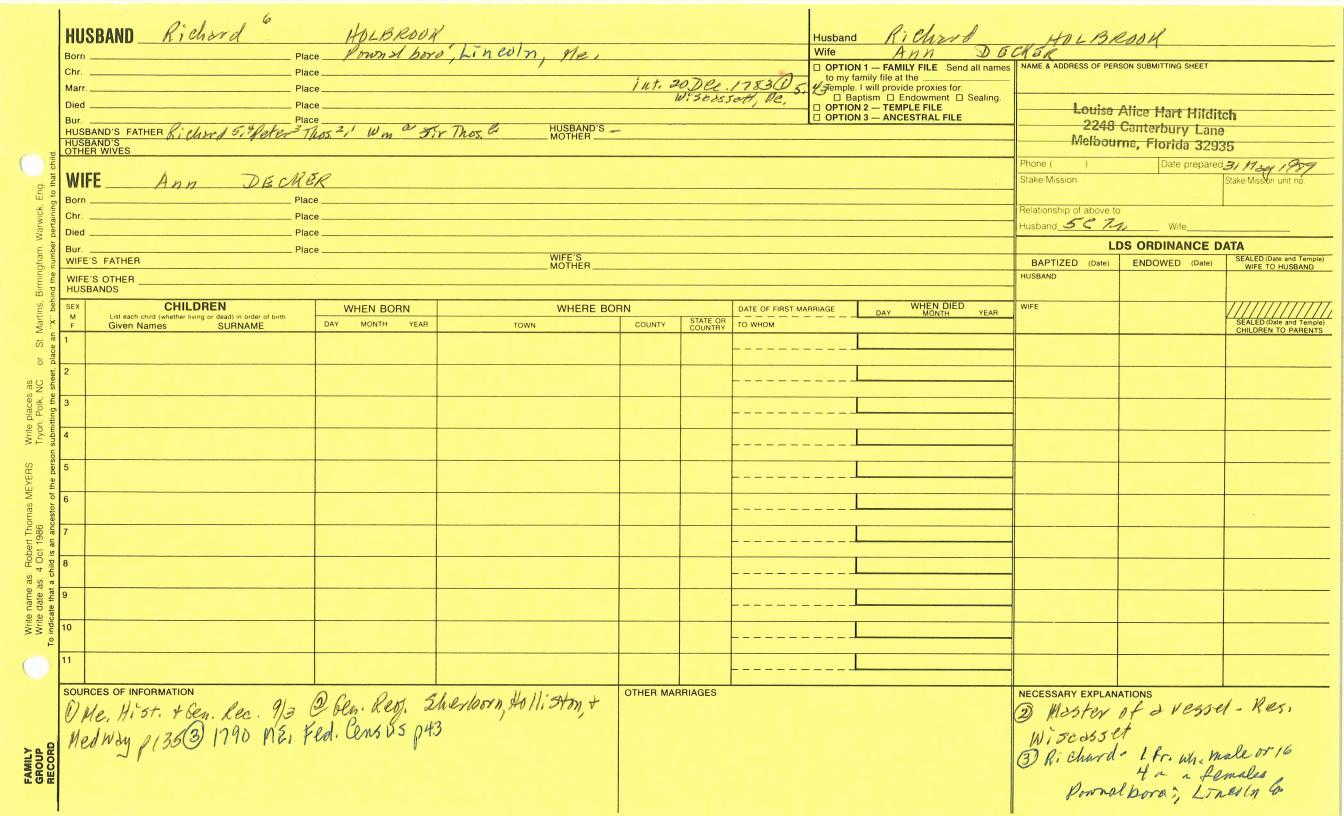 HUSBAND Richard 6 HOLBROOK
Born Place Pownalboro', Lincoln, Me.
Chr. Place
Marr. Place int. 20 Dec. 1783 ①
Wiscassett, Me.
Died Place
Bur. Place
HUSBAND'S FATHER Richard 5, Peter Thos. HUSBAND'S MOTHER –
HUSBAND'S OTHER WIVES
WIFE Ann DECKER
Born Place
Chr. Place
Died Place
Bur. Place
WIFE'S FATHER WIFE'S MOTHER
WIFE'S OTHER HUSBANDS
Husband Richard HOLBROOK
Wife Ann DECKER
☐ OPTION 1 — FAMILY FILE Send all names
to my family file at the
Temple. I will provide proxies for:
☐ Baptism ☐ Endowment ☐ Sealing.
☐ OPTION 2 — TEMPLE FILE
☐ OPTION 3 — ANCESTRAL FILE
NAME & ADDRESS OF PERSON SUBMITTING SHEET
Louise Alice Hart Hilditch
2248 Canterbury Lane
Melbourne, Florida 32935
Phone ( ) Date prepared 31 May 1989
Stake/Mission Stake/Mission unit no.
Relationship of above to
Husband 5C Wife
LDS ORDINANCE DATA
BAPTIZED (Date) ENDOWED (Date) SEALED (Date and Temple) WIFE TO HUSBAND
HUSBAND
WIFE
SEALED (Date and Temple) CHILDREN TO PARENTS
SEX M F
CHILDREN
List each child (whether living or dead) in order of birth
Given Names SURNAME
WHEN BORN
DAY MONTH YEAR
WHERE BORN
TOWN COUNTY STATE OR COUNTRY
DATE OF FIRST MARRIAGE
TO WHOM
WHEN DIED
DAY MONTH YEAR
1
2
3
4
5
6
7
8
9
10
11
SOURCES OF INFORMATION
① Me. Hist. & Gen. Rec. 9/3 ② Gen. Reg. Sherborn, Holliston, &
Medway p135 ③ 1790 ME. Fed. Census p43
OTHER MARRIAGES
NECESSARY EXPLANATIONS
② Master of a vessel - Res.
Wiscasset
③ Richard - 1 fr. wh. male or 16
4 " " females
Pownalboro', Lincoln Co
Write name as Robert Thomas MEYERS Write places as Tryon, Polk, NC or St. Martins, Birmingham, Warwick, Eng.
Write date as 4 Oct 1986
To indicate that a child is an ancestor of the person submitting the sheet, place an "X" behind the number pertaining to that child.
FAMILY
GROUP
RECORD